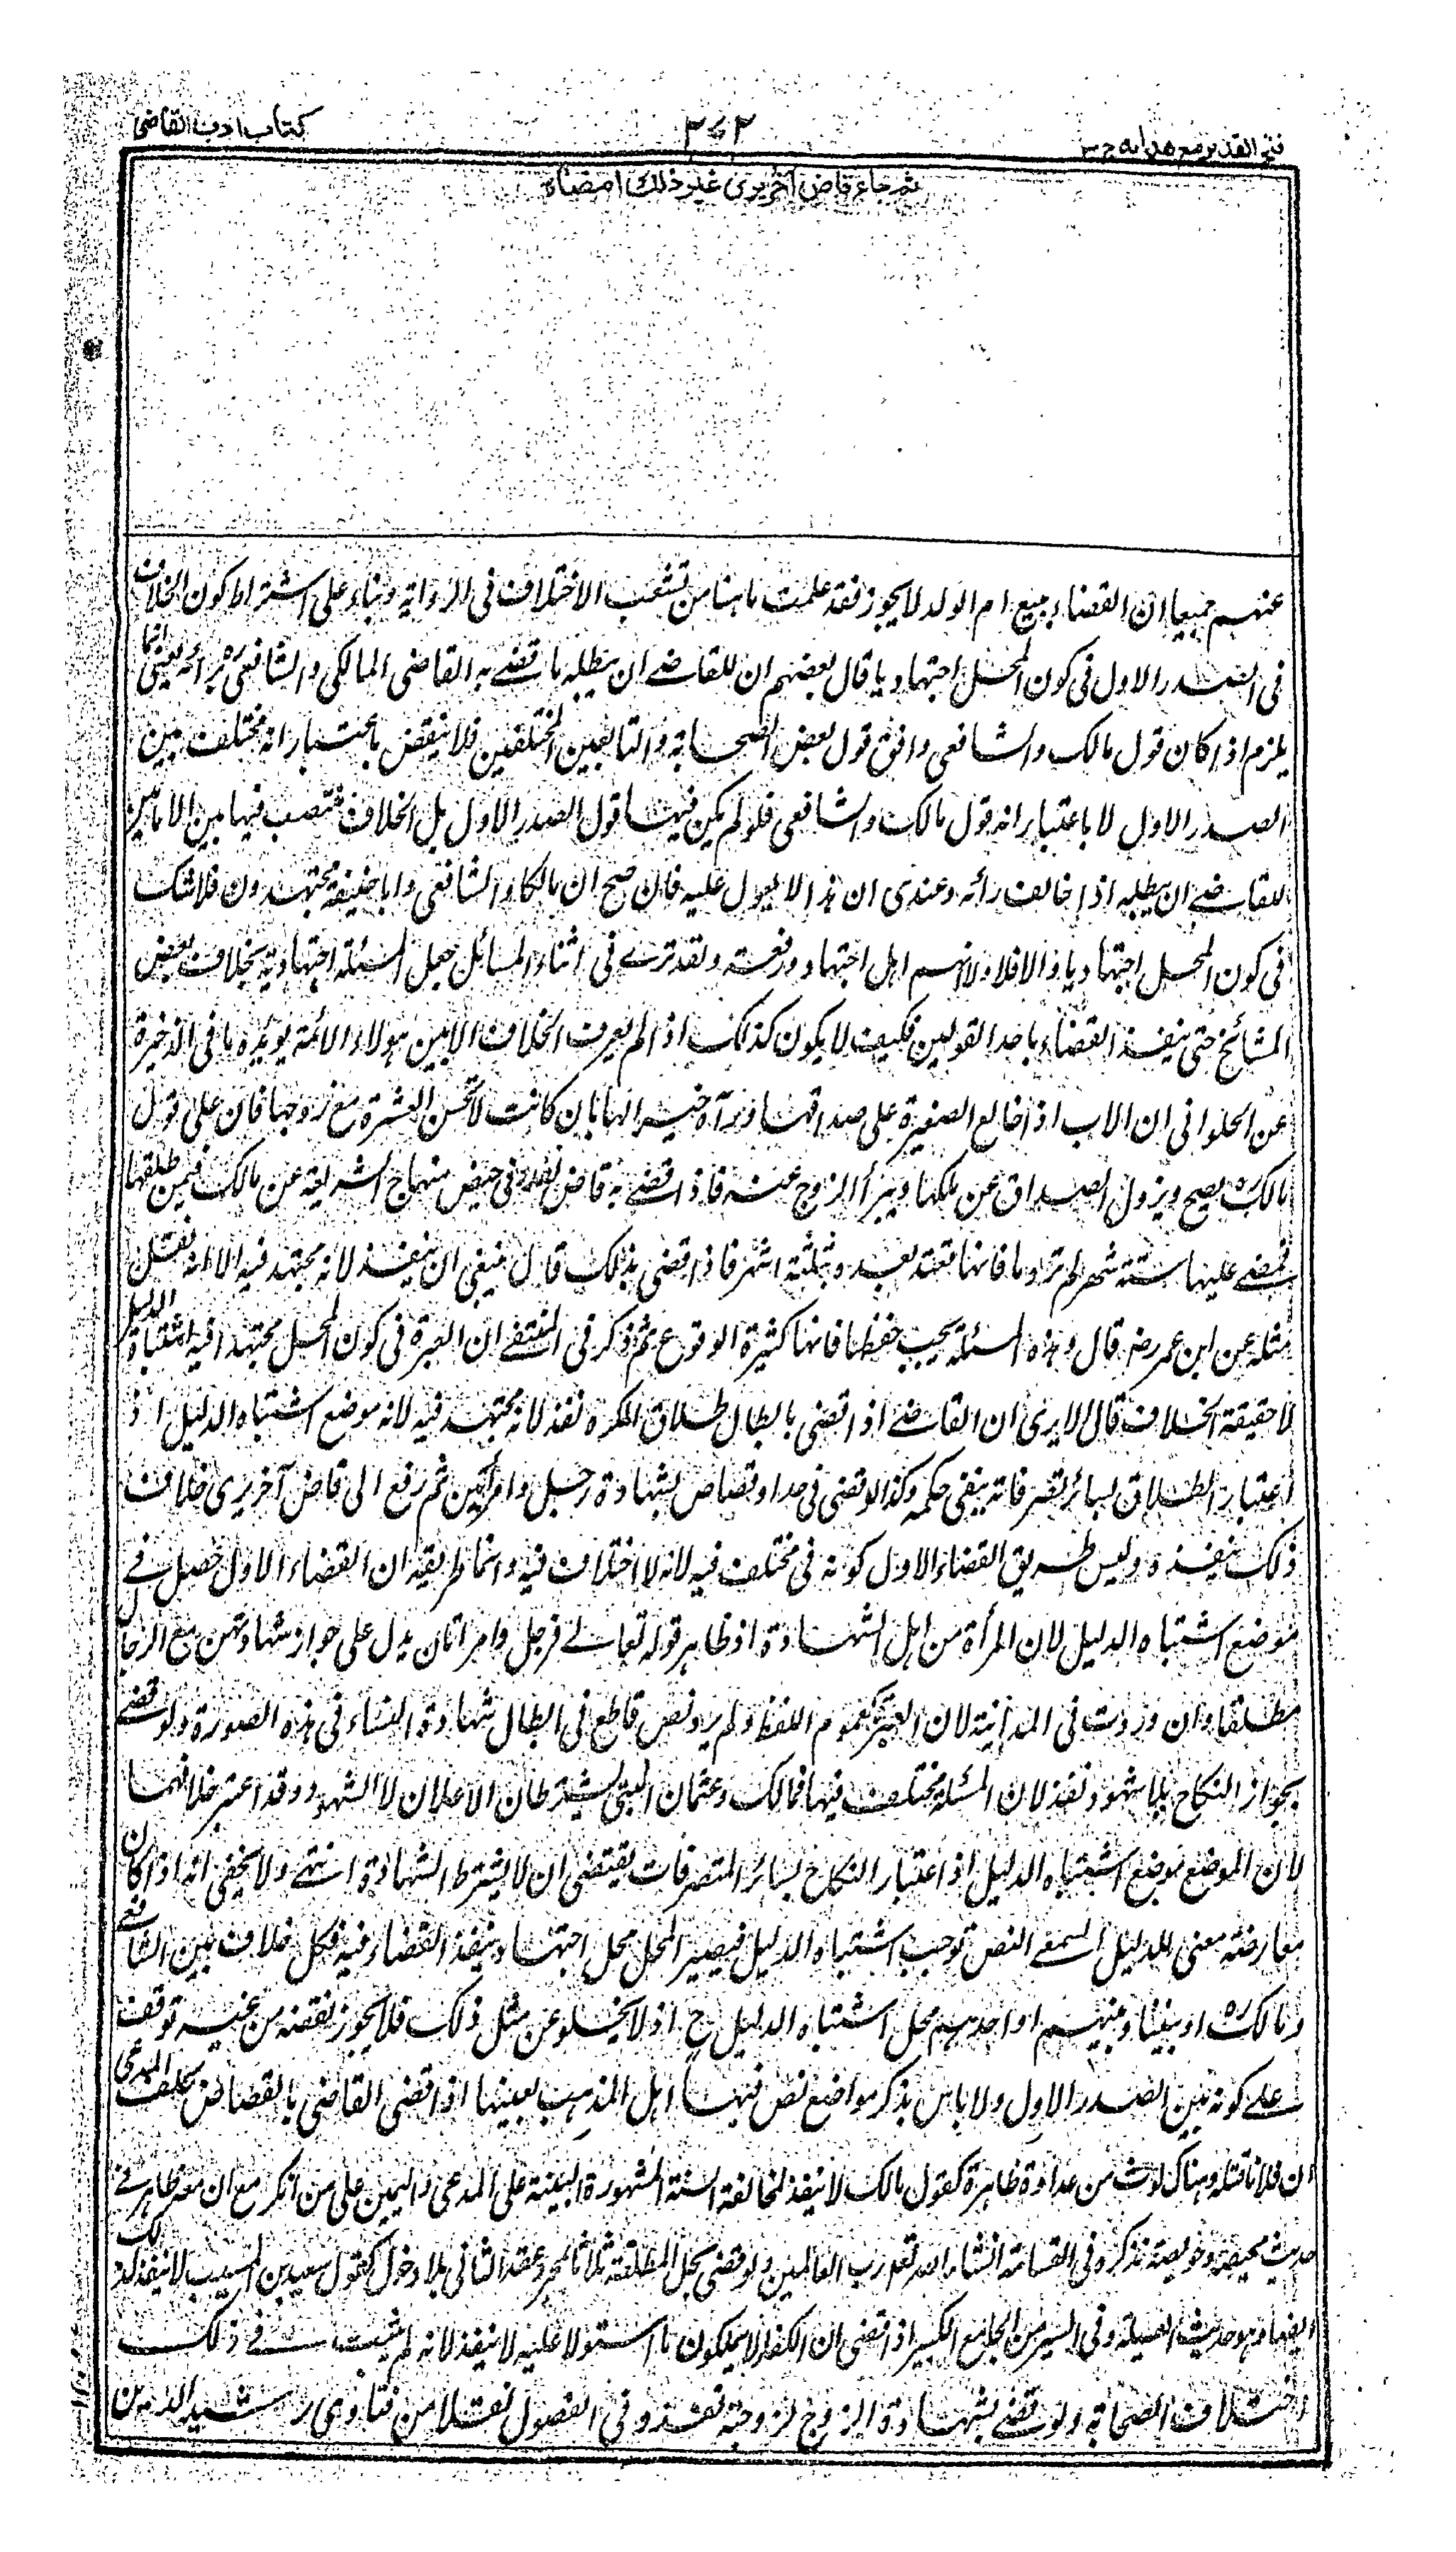 فتح القدير مع هدايه ج ٣
٣٧٢
كتاب ادب القاضي
ثم جاء قاض آخر يرى غير ذلك امضاه
عنهم جميعا ان القضاء ببيع ام الولد لا يجوز فقد علمت ما هنا من تشعب الاختلاف فى الرواية وبناء على اشتراط كون الخلاف
فى الصدر الاول فى كون المحل اجتهاديا قال بعضهم ان للقاضے ان يبطله ما قضے به القاضى المالكى والشافعى ره برائه يعنى انما
يلزم اذا كان قول مالك والشافعى وافق قول بعض الصحابة والتابعين المختلفين فلا ينقض باعتبار انه مختلف بين
الصدر الاول لا باعتبار انه قول مالك والشافعى فلو لم يكن فيها قول الصدر الاول بل الخلاف مقتضب فيها بين الامامين
للقاضے ان يبطله اذا خالف رائه وعندى ان هذا لا يعول عليه فان صح ان مالكا والشافعى وابا حنيفة مجتهدون فلا شك
فى كون المحل اجتهاديا والا فلا ولا انهم اهل اجتهاد ورفعة ولقد ترے فى اثناء المسائل جعل المسئلة اجتهادية بخلاف بعض
المشائخ حتى ينفذ القضاء باحد القولين فكيف لا يكون كذلك اذا لم يعرف الخلاف الا بين هؤلاء الائمة يؤيده ما فى الذخيرة
عن الحلوانى ان الاب اذا خالع الصغيرة على صداقها ورآه خيرا لها بان كانت لا تحسن العشرة مع زوجها فان على قول
مالك ره يصح ويزول الصداق عن ملكها ويبرأ الزوج عنه فاذا قضے به قاض نفذ وفى حيض منهاج الشريعة عن مالك فيمن طلقها
فمضے عليها ستة شهر لم تر دما فانها تعتد بعده بثلثة اشهر فاذا قضى بذلك قاض ينبغى ان ينفذ لانه مجتهد فيه الا انه نقل
مثله عن ابن عمر رضـ قال وهذه المسئلة يجب حفظها فانها كثيرة الوقوع ثم ذكر فى المنتقے ان العبرة فى كون المحل مجتهدا فيه اشتباه الدليل
لا حقيقة الخلاف قال الا يرى ان القاضے اذا قضى بابطال طلاق المكره نفذ لانه مجتهد فيه لانه موضع اشتباه الدليل اذ
اعتبار الطلاق بسائر تصرفاته ينفى حكمه وكذا لو قضى فى حد او قصاص بشهادة رجل وامرأتين ثم رفع الى قاض آخر يرى خلاف
ذلك ينفذه وليس طريق القضاء الاول كونه فى مختلف فيه لانه لا اختلاف فيه وانما طريقه ان القضاء الاول حصل فے
موضع اشتباه الدليل لان المرأة من اهل الشهادة اذ ظاهر قوله تعالے فرجل وامرأتان يدل على جواز شهادتهن مع الرجال
مطلقا وان وردت فى المداينة لان العبرة لعموم اللفظ ولم يرد نص قاطع فى ابطال شهادة النساء فى هذه الصورة ولو قضے
بجواز النكاح بلا شهود نفذ لان المسئلة مختلف فيها فمالك وعثمان البتى يشترطان الاعلان لا الشهود وقد اعتبر خلافهما
لان الموضع موضع اشتباه الدليل اذ اعتبار النكاح بسائر التصرفات يقتضى ان لا يشترط الشهادة انتهے ولا يخفى انه اذا كان
معارضة معنى الدليل السمعے النص توجب اشتباه الدليل فيصير المحل محل اجتهاد ينفذ القضاء فيه فكل خلاف بين الشافعے
ومالك ره او بيننا وبينهم او احدهم محل اشتباه الدليل ح اذ لا يخلو عن مثل ذلك فلا يجوز نقضه من غير توقف
علے كونه بين الصدر الاول ولا باس بذكر مواضع نص فيها اهل المذهب بعينها اذا قضى القاضى بالقصاص بحلف المدعى
ان فلانا قتله وهناك لوث من عداوة ظاهرة كقول مالك لا ينفذ لمخالفة السنة المشهورة البينة على المدعى واليمين على من انكر مع ان معه ظاهر فے
حديث محيصة وحويصة نذكره فى القسامة انشاء الله تعالى رب العالمين ولو قضى بحل المطلقة ثلاثا بمجرد عقد الثانى بلا دخول كقول سعيد بن المسيب لا ينفذ لذلك
ايضا وهو حديث العسيلة وفى السير من الجامع الكبير اذا قضى ان الكفار لا يملكون ما استولوا عليه لا ينفذ لانه لم يثبت فے ذلك
اختلاف الصحابة ولو قضے بشهادة الزوج لزوجته نفذ وفى الفصول نقلا من فتاوى رشيد الدين